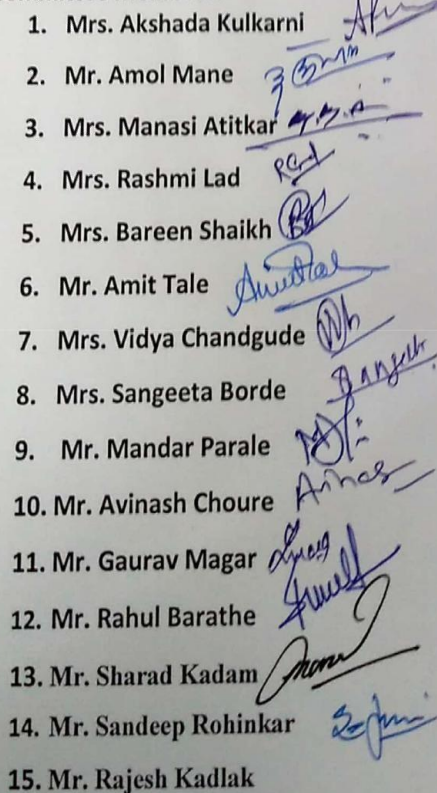 1. Mrs. Akshada Kulkarni
2. Mr. Amol Mane
3. Mrs. Manasi Atitkar
4. Mrs. Rashmi Lad
5. Mrs. Bareen Shaikh
6. Mr. Amit Tale
7. Mrs. Vidya Chandgude
8. Mrs. Sangeeta Borde
9. Mr. Mandar Parale
10. Mr. Avinash Choure
11. Mr. Gaurav Magar
12. Mr. Rahul Barathe
13. Mr. Sharad Kadam
14. Mr. Sandeep Rohinkar
15. Mr. Rajesh Kadlak